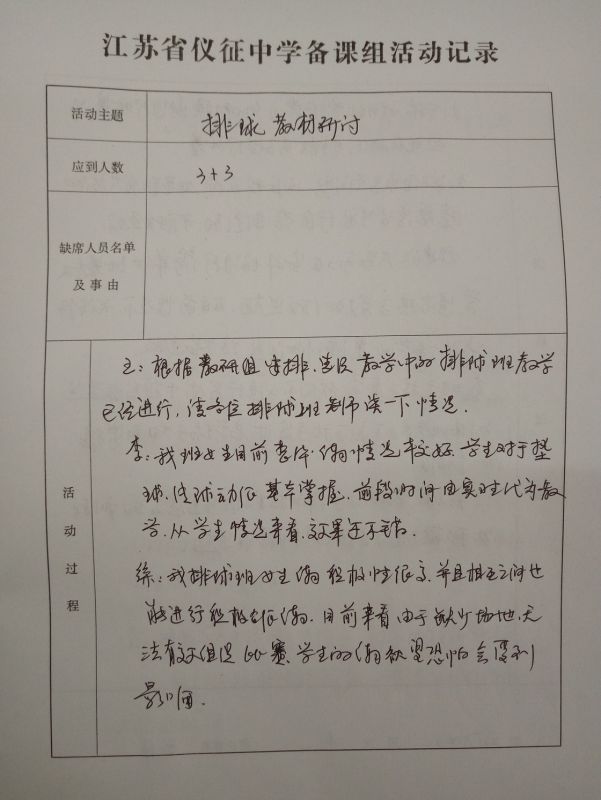 江苏省仪征中学备课组活动记录
活动主题
排球教材研讨
应到人数
3+3
缺席人员名单
及事由
活动过程
王：根据教研组安排，选段教学中的排球班教学
已经进行，请各位排球班老师谈一下情况。
李：我班女生目前整体情况较好，学生对于垫
球、传球动作基本掌握，前段时间由实习生代为教
学，从学生情况来看，效果还不错。
徐：我排球班女生练习积极性很高，并且相互之间也
能进行积极练习。目前来看由于缺少场地，无
法有效组织比赛，学生的练习欲望恐怕会受到
影响。